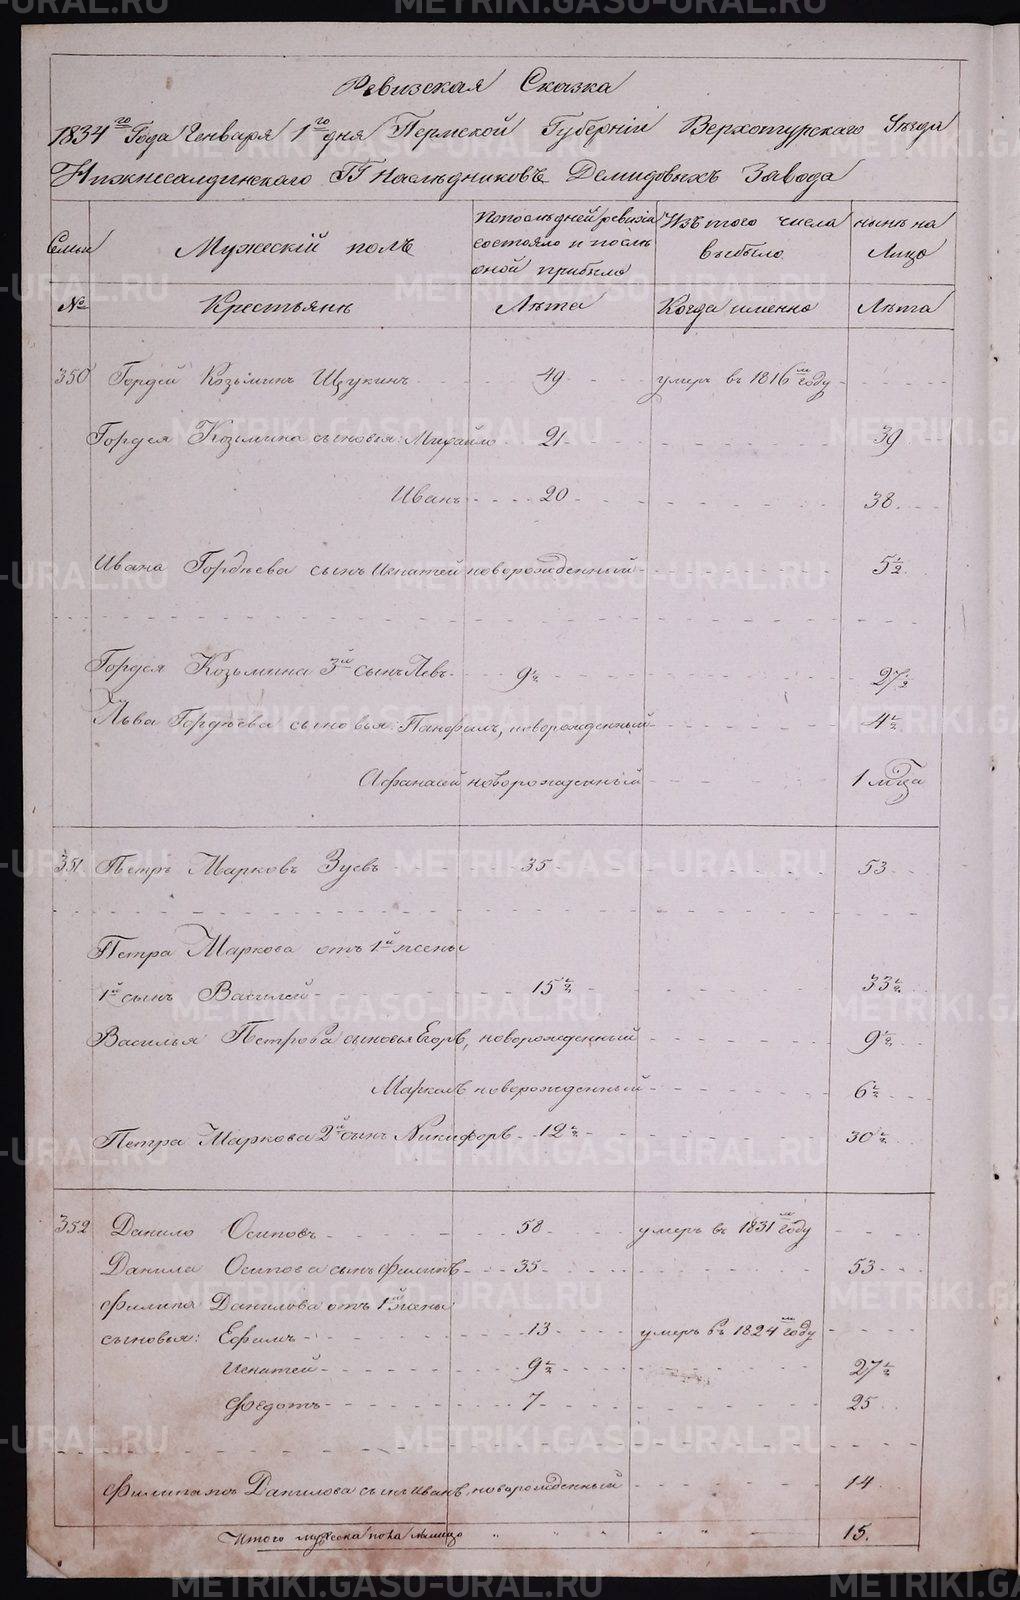 Ревизская Сказка
1834го Года Генваря 1го дня Пермской Губернiи Верхотурского Уезда
Нижнесалдинскаго ГГ Наследниковъ Демидовыхъ Завода
Семьи
Мужескiй полъ
По последней ревизiи состояло и после оной прибыло
Изъ того числа выбыло
ныне на Лицо
№
Крестьяне
Лета
Когда именно
Лета
350 Гордей Козьминъ Щукинъ 49 умеръ въ 1816м году
Гордея Козьмина сыновья: Михайло 21 39
Иванъ 20 38
Ивана Гордеева сынъ Игнатей новорожденный 5½
Гордея Козьмина 3й сынъ Левъ 9½ 27½
Льва Гордеева сыновья: Панфилъ, новорожденный 4½
Афанасей новорожденный 1 мца
351 Петръ Марковъ Зуевъ 35 53
Петра Маркова отъ 1й жены
1й сынъ Василей 15½ 33½
Василья Петрова сыновья Егоръ, новорожденный 9½
Маркелъ новорожденный 6½
Петра Маркова 2й сынъ Никифоръ 12½ 30½
352 Данило Осиповъ 58 умеръ въ 1831м году
Данила Осипова сынъ Филипъ 35 53
Филипа Данилова отъ 1й жены
сыновья: Ефимъ 13 умеръ въ 1824м году
Игнатей 9½ 27½
Федотъ 7 25
Данилова сынъ Иванъ, новорожденный 14
Итого мужеска пола налицо " " " " 15.
METRIKI.GASO-URAL.RU